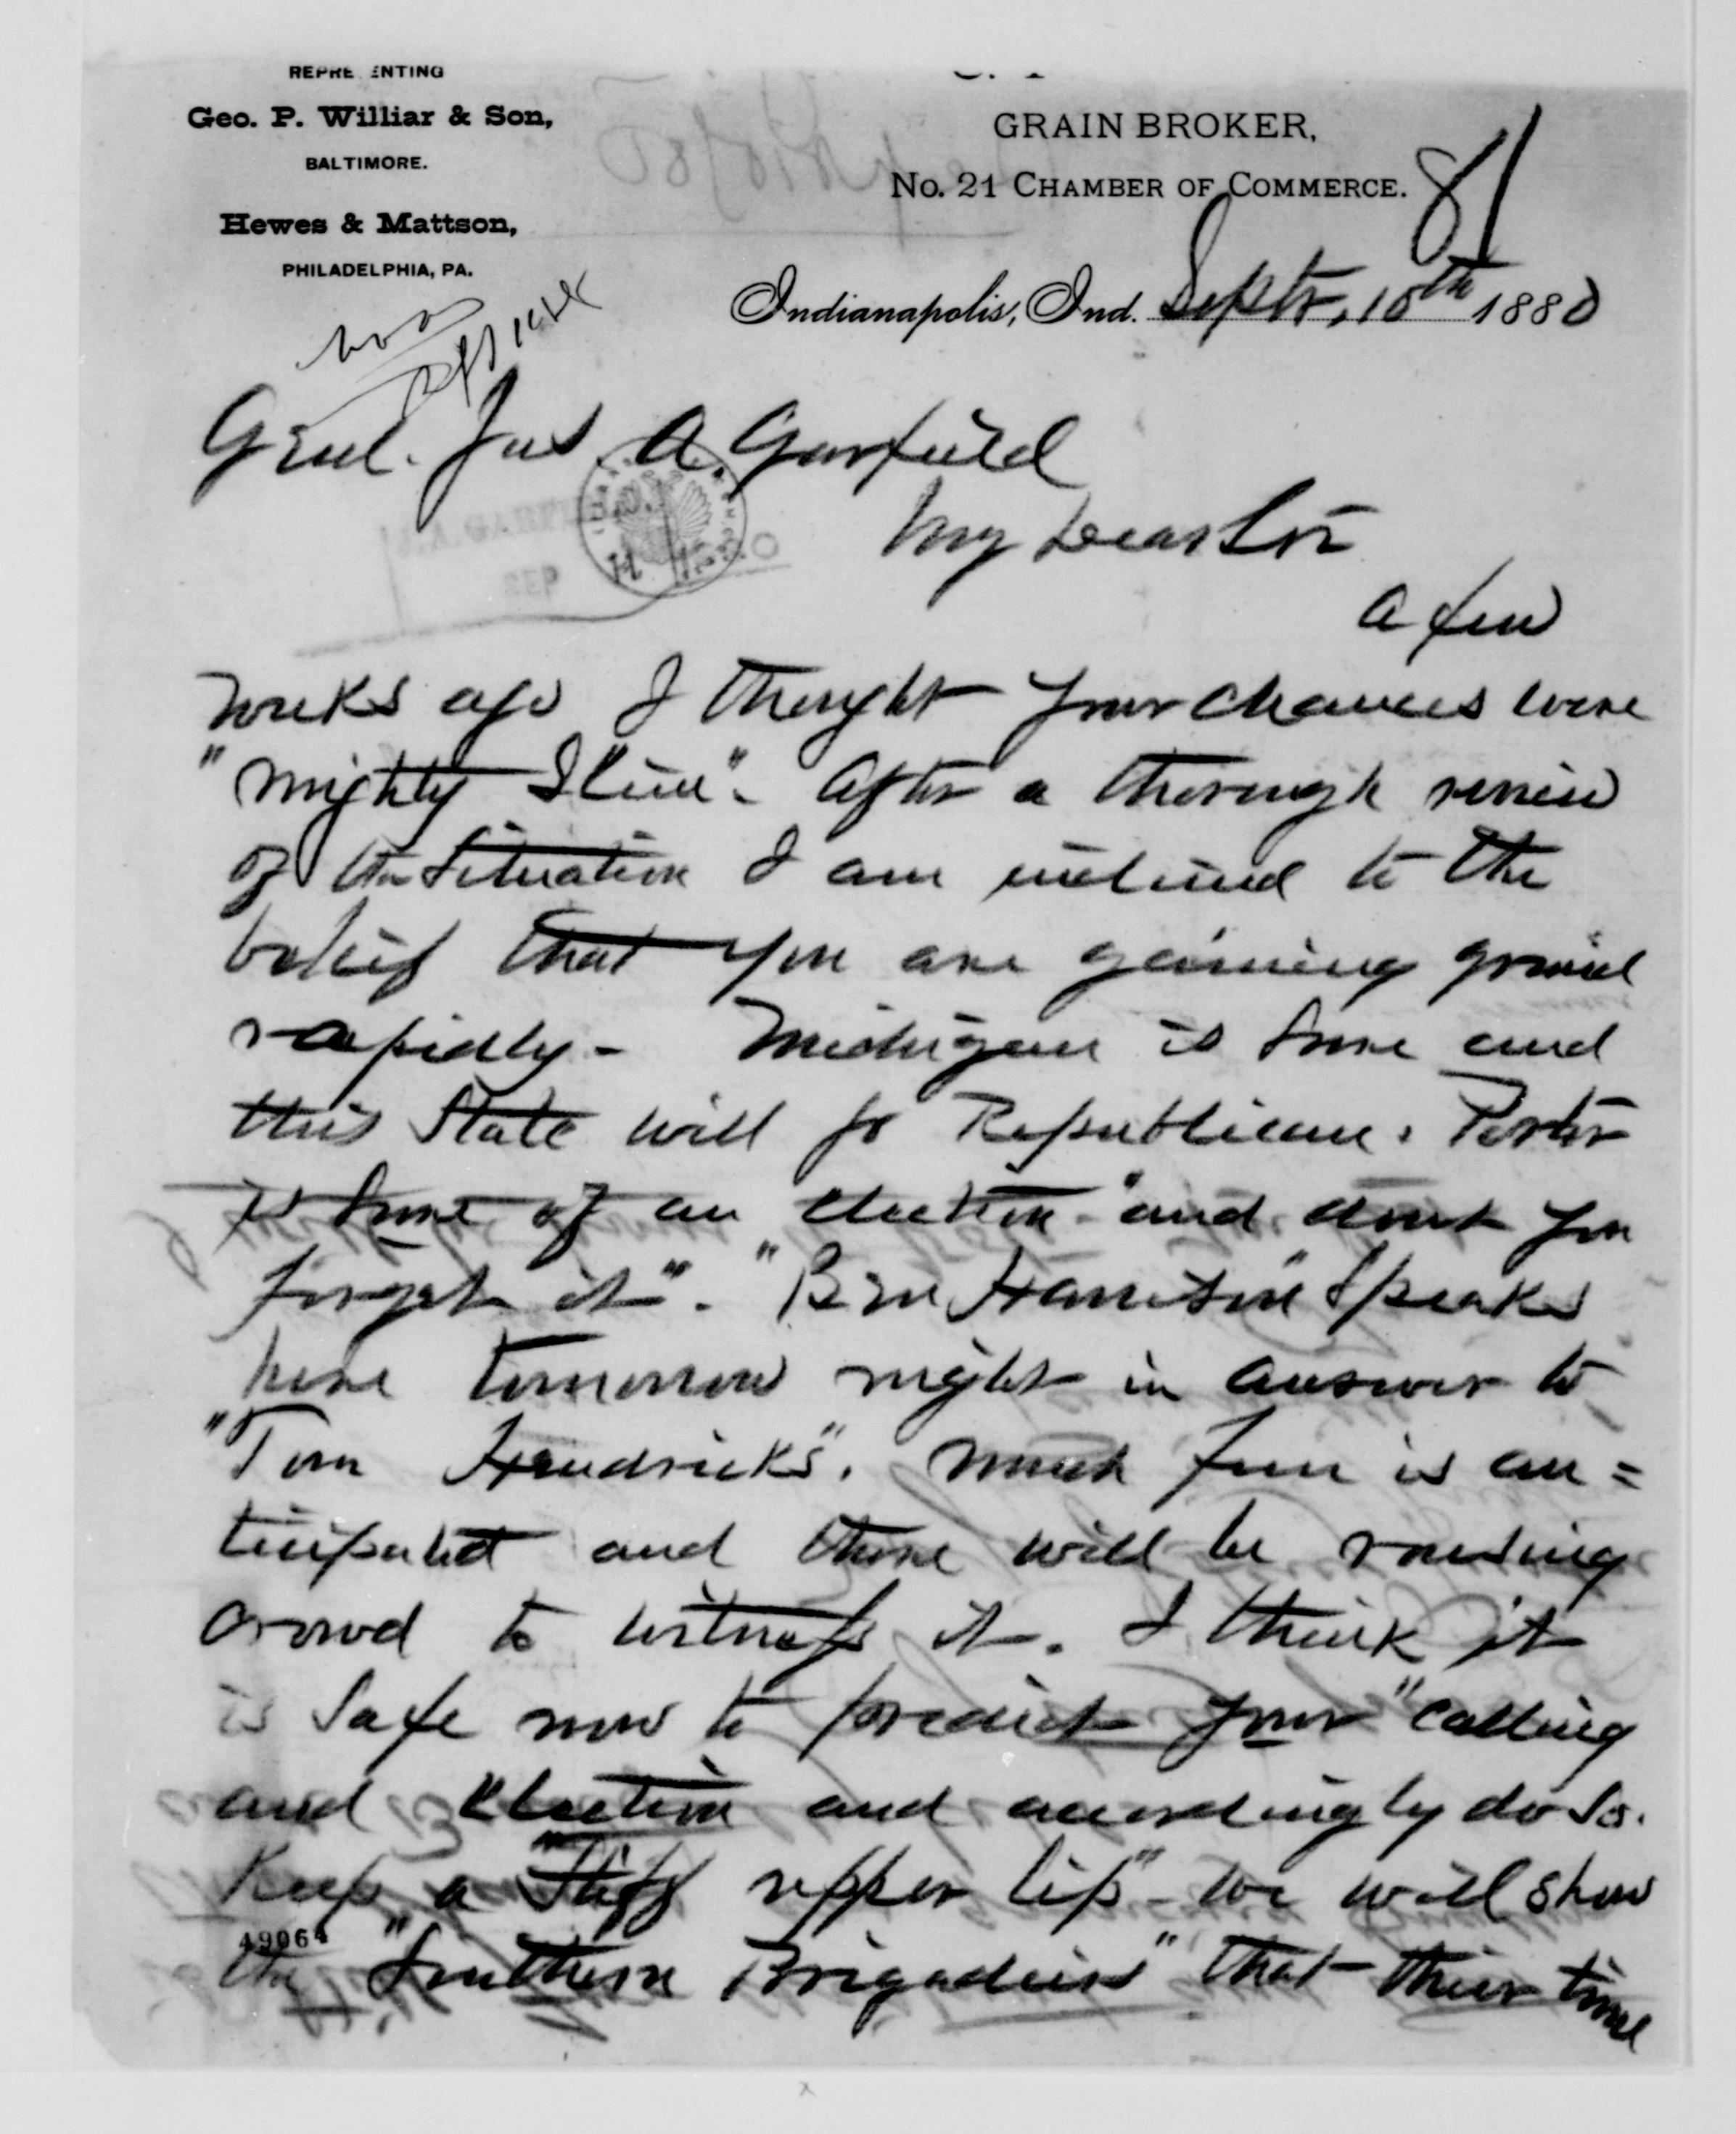 REPRESENTING
Geo. P. Williar & Son,
BALTIMORE.
Hewes & Mattson,
PHILADELPHIA, PA.
GRAIN BROKER,
No. 21 CHAMBER OF COMMERCE.
81
Indianapolis, Ind. Septr. 10th 1880
Genl. Jas A. Garfield
My Dear Sir
A few
weeks ago I thought your chances were
"mighty Slim". After a thorough review
of the Situation I am inclined to the
belief that you are gaining ground
rapidly - Michigan is Sure and
this State will go Republican. Porter
is Sure of an election "and dont you
forget it". "Ben Harrison" Speaks
here tomorrow night in answer to
"Tom Hendricks". Much fun is an=
ticipated and there will be rousing
crowd to witness it. I think it
is Safe now to predict your "calling
and Election and accordingly do So.
Keep a "Stiff upper lip" - we will show
49064
the "Southern Brigadiers" that thier time